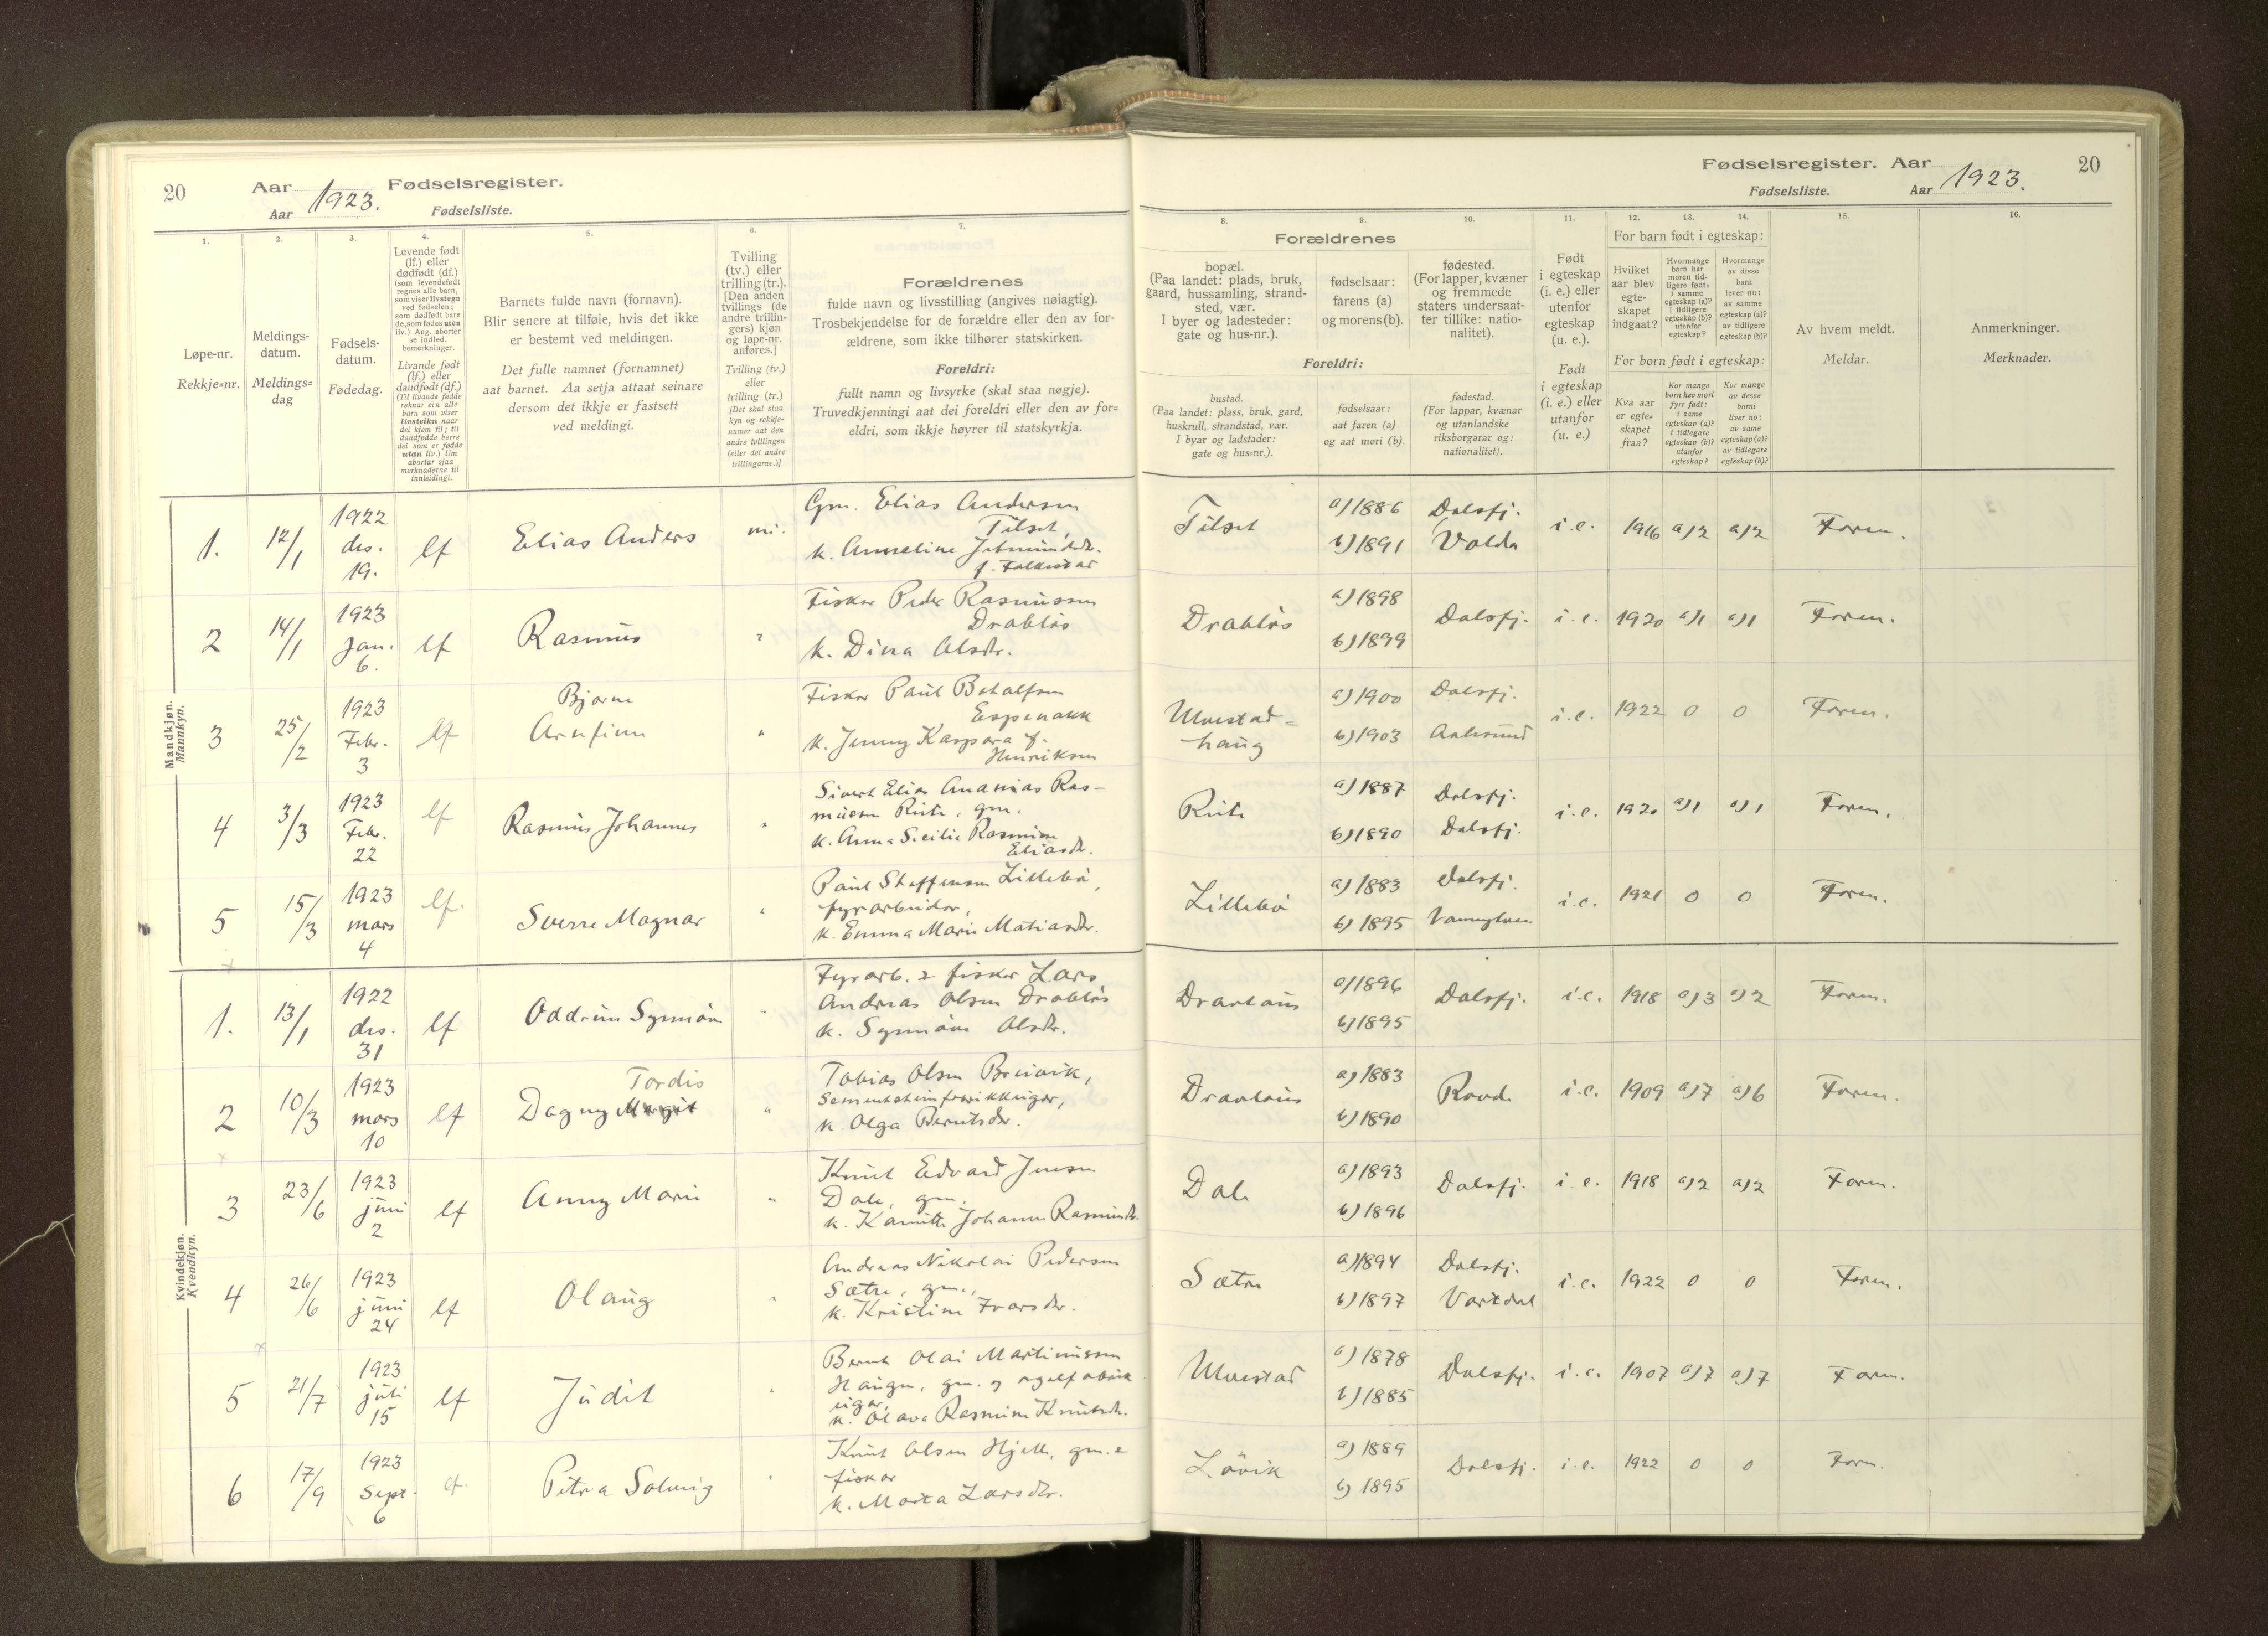 20
Aar 1923. Fødselsregister.
Aar Fødselsliste.
1.
2.
3.
4.
5.
6.
7.
Løpe-nr.
Rekkje=nr.
Meldings-
datum.
Meldings=
dag
Fødsels-
datum.
Fødedag.
Levende født
(lf.) eller
dødfødt (df.)
(som levendefødt
regnes alle barn,
som viser livstegn
ved fødselen;
som dødfødt bare
de, som fødes uten
liv.) Ang. aborter
se indled.
bemerkninger.
Livande født
(lf.) eller
daudfødt (df.)
(Til livande fødde
reknar ein alle
born som viser
livsteikn naar
dei kjem til; til
daudfødde berre
dei som er fødde
utan liv.) Um
abortar sjaa
merknaderne til
innleidingi.
Barnets fulde navn (fornavn).
Blir senere at tilføie, hvis det ikke
er bestemt ved meldingen.
Det fulle namnet (fornamnet)
aat barnet. Aa setja attaat seinare
dersom det ikkje er fastsett
ved meldingi.
Tvilling
(tv.) eller
trilling (tr.).
[Den anden
tvillings (de
andre trillin-
gers) kjøn
og løpe-nr.
anføres.]
Tvilling (tv.)
eller
trilling (tr.)
[Det skal staa
kyn og rekkje-
numer aat den
andre tvillingen
(eller dei andre
trillingarne.)]
Forældrenes
fulde navn og livsstilling (angives nøiagtig).
Trosbekjendelse for de forældre eller den av for-
ældrene, som ikke tilhører statskirken.
Foreldri:
fullt namn og livsyrke (skal staa nøgje).
Truvedkjenningi aat dei foreldri eller den av for=
eldri, som ikkje høyrer til statskyrkja.
Mandkjøn.
Mannkyn.
1. 12/1 1922 des. 19. lf Elias Anders
Gm. Elias Andersen
Tilset,
f. Folkestad
2 14/1 1923 Jan. 6. lf Rasmus "
Fisker Peder Rasmussen
Drabløs
k. Dina Olsdr.
3 25/2 1923 Febr. 3 lf Bjarne
Arnfinn "
Fisker Paul Botolfsen
Espenakk
k. Jenny Kaspara f.
Henriksen
4 3/3 1923 Febr. 22 lf Rasmus Johannes "
Sivert Elias Ananias Ras-
mussen Riite, gm.
k. Anna Sicilie Rasmine
Eliasdr.
5 15/3 1923 mars 4 lf. Sverre Magnar "
Paul Steffensen Lillebø,
fyrarbeider,
k. Emma Marie Matiasdr.
Kvindekjøn.
Kvendkyn.
1. 13/1 1922 des. 31 lf Oddrun Synnøve "
Fyrarb. & fisker Lars
Andreas Olsen Drabløs
k. Synnøve Olsdr.
2 10/3 1923 mars 10 lf Tordis
Dagny Margit "
Tobias Olsen Breivik,
k. Olga Berntsdr.
3 23/6 1923 juni 2 lf Anny Marie "
Knut Edvard Jensen
Dale, gm.
k. Kamilla Johanne Rasmusdr.
4 26/6 1923 juni 24 lf Olaug "
Andreas Nikolai Pedersen
Sætre, gm.,
k. Kristine Ivarsdr.
5 21/7 1923 juli 15 lf Judit "
Bernt Olai Martinussen
Haugen, gm. og
eigar,
k. Olava Rasmine Knutsdr.
6 17/9 1923 Sept. 6 lf. Petra Solveig "
Knut Olsen Hjelle, gm. &
fisker
k. Marta Larsdr.
Fødselsregister. Aar 1923. 20
Fødselsliste. Aar
8.
9.
10.
11.
12.
13.
14.
15.
16.
Forældrenes
bopæl.
(Paa landet: plads, bruk,
gaard, hussamling, strand-
sted, vær.
I byer og ladesteder:
gate og hus-nr.).
fødselsaar:
farens (a)
og morens (b).
fødested.
(For lapper, kvæner
og fremmede
staters undersaat-
ter tillike: natio-
nalitet).
Foreldri:
bustad.
(Paa landet: plass, bruk, gard,
huskrull, strandstad, vær.
I byar og ladstader:
gate og hus=nr.).
fødselsaar:
aat faren (a)
og aat mori (b).
fødestad.
(For lappar, kvænar
og utanlandske
riksborgarar og:
nationalitet).
Født
i egteskap
(i. e.) eller
utenfor
egteskap
(u. e.).
Født
i egteskap
(i. e.) eller
utanfor
(u. e.).
For barn født i egteskap:
Hvilket
aar blev
egte-
skapet
indgaat?
Hvormange
barn har
moren tid-
ligere født:
i samme
egteskap (a)?
i tidligere
egteskap (b)?
utenfor
egteskap?
Hvormange
av disse
barn
lever nu:
av samme
egteskap (a)?
av tidligere
egteskap (b)?
For born født i egteskap:
Kva aar
er egte=
skapet
fraa?
Kor mange
born hev mori
fyrr født:
i same
egteskap (a)?
i tidlegare
egteskap (b)?
utanfor
egteskap?
Kor mange
av desse
borni
liver no:
av same
egteskap (a)?
av tidlegare
egteskap (b)?
Av hvem meldt.
Meldar.
Anmerkninger.
Merknader.
Tilset a) 1886 b) 1891 Dalsfj. Volda i.e. 1916 a) 2 a) 2 Foren.
Drabløs a) 1898 b) 1899 Dalsfj. i.e. 1920 a) 1 a) 1 Foren.
Ulvestad=
haug a) 1900 b) 1903 Dalsfj. Aalesund i.e. 1922 0 0 Foren.
Riite a) 1887 b) 1890 Dalsfj. Dalsfj. i.e. 1920 a) 1 a) 1 Foren.
Lillebø a) 1883 b) 1895 Dalsfj. Vannylven i.e. 1921 0 0 Foren.
Dravlaus a) 1896 b) 1895 Dalsfj. i.e. 1918 a) 3 a) 2 Foren.
Dravlaus a) 1883 b) 1890 Rovde i.e. 1909 a) 7 a) 6 Foren.
Dale a) 1893 b) 1896 Dalsfj. i.e. 1918 a) 2 a) 2 Foren.
Sætre a) 1894 b) 1897 Dalsfj. Vartdal i.e. 1922 0 0 Foren.
Ulvestad a) 1878 b) 1885 Dalsfj. i.e. 1907 a) 7 a) 7 Foren.
Løvik a) 1889 b) 1895 Dalsfj. i.e. 1922 0 0 Foren.